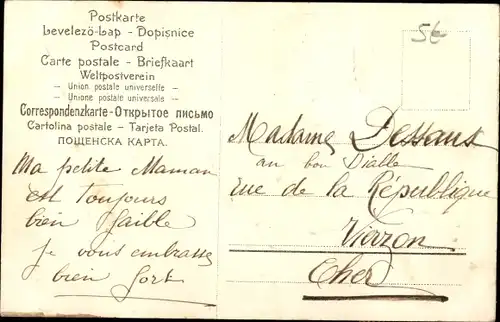 Postkarte
Levelező-Lap - Dopisnice
Postcard
Carte postale - Briefkaart
Weltpostverein
- Union postale universelle -
- Unione postale universale -
Correspondenzkarte - Открытое письмо
Cartolina postale - Tarjeta Postal.
ПОЩЕНСКА КАРТА.
Ma petite Maman
est toujours
bien faible
je vous embrasse
bien fort
56
Madame Dessaus
au bon Diable
rue de la République
Vierzon
Cher